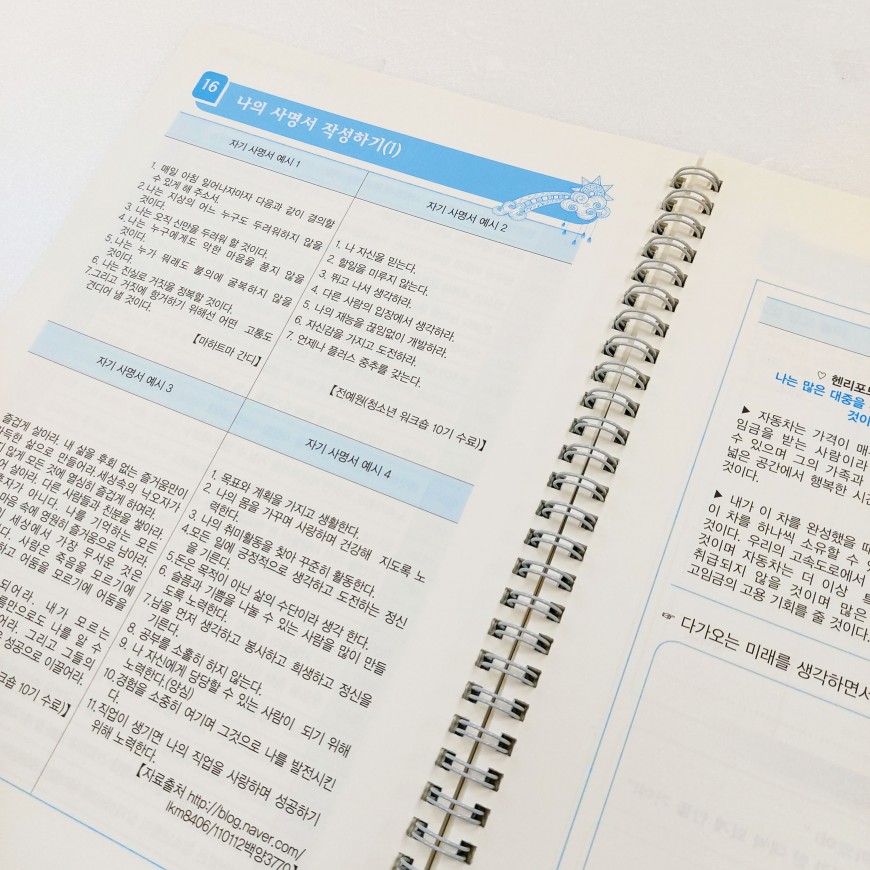 16
나의 사명서 작성하기(1)
자기 사명서 예시 1
1. 매일 아침 일어나자마자 다음과 같이 결의할
수 있게 해 주소서.
2.나는 지상의 어느 누구도 두려워하지 않을
것이다.
3. 나는 오직 신만을 두려워 할 것이다.
4.나는 누구에게도 악한 마음을 품지 않을
것이다.
5.나는 누가 뭐래도 불의에 굴복하지 않을
것이다.
6. 나는 진실로 거짓을 정복할 것이다.
7.그리고 거짓에 항거하기 위해선 어떤 고통도
견디어 낼 것이다.
【마하트마 간디】
자기 사명서 예시 2
1. 나 자신을 믿는다.
2. 할일을 미루지 않는다.
3. 뛰고 나서 생각하라.
4. 다른 사람의 입장에서 생각하라.
5. 나의 재능을 끊임없이 개발하라.
6. 자신감을 가지고 도전하라.
7. 언제나 플러스 중추를 갖는다.
【전예원(청소년 워크숍 10기 수료)】
자기 사명서 예시 3
즐겁게 살아라. 내 삶을 후회 없는 즐거움만이
가득한 삶으로 만들어라.세상속의 낙오자가
않게 모든 것에 열심히 즐겁게 하여라.
살아라. 다른 사람들과 친분을 쌓아라.
아니다. 나를 기억하는 모든
마음 속에 영원히 즐거움으로 남아라.
세상에서 가장 무서운 것은
사람은 죽음을 모르기에
하고 어둠을 모르기에 어둠을
되어라. 내가 모르는
나를 알 수
그리고 그들의
성공으로 이끌어라.
10기 수료)】
자기 사명서 예시 4
1. 목표와 계획을 가지고 생활한다.
2. 나의 몸을 가꾸며 사랑하며 건강해 지도록 노
력한다.
3. 나의 취미활동을 찾아 꾸준히 활동한다.
4.모든 일에 긍정적으로 생각하고 도전하는 정신
을 기른다.
5.돈은 목적이 아닌 삶의 수단이라 생각 한다.
6. 슬픔과 기쁨을 나눌 수 있는 사람을 많이 만들
도록 노력한다.
7.남을 먼저 생각하고 봉사하고 희생하고 정신을
기른다.
8. 공부를 소홀히 하지 않는다.
9. 나 자신에게 당당할 수 있는 사람이 되기 위해
노력한다.(양심)
10.경험을 소중히 여기며 그것으로 나를 발전시킨
다.
11.직업이 생기면 나의 직업을 사랑하며 성공하기
위해 노력한다.
【자료출처 http://blog.naver.com/
lkm8406/110112백양3770】
♡ 헨리포드
나는 많은 대중을
▶ 자동차는 가격이
임금을 받는 사람이라
수 있으며 그의 가족과
넓은 공간에서 행복한 시간
것이다.
▶ 내가 이 차를 완성했을 때
이 차를 하나씩 소유할 수
것이다. 우리의 고속도로에서
것이며 자동차는 더 이상
취급되지 않을 것이며 많은
고임금의 고용 기회를 줄 것이다.
☞ 다가오는 미래를 생각하면서